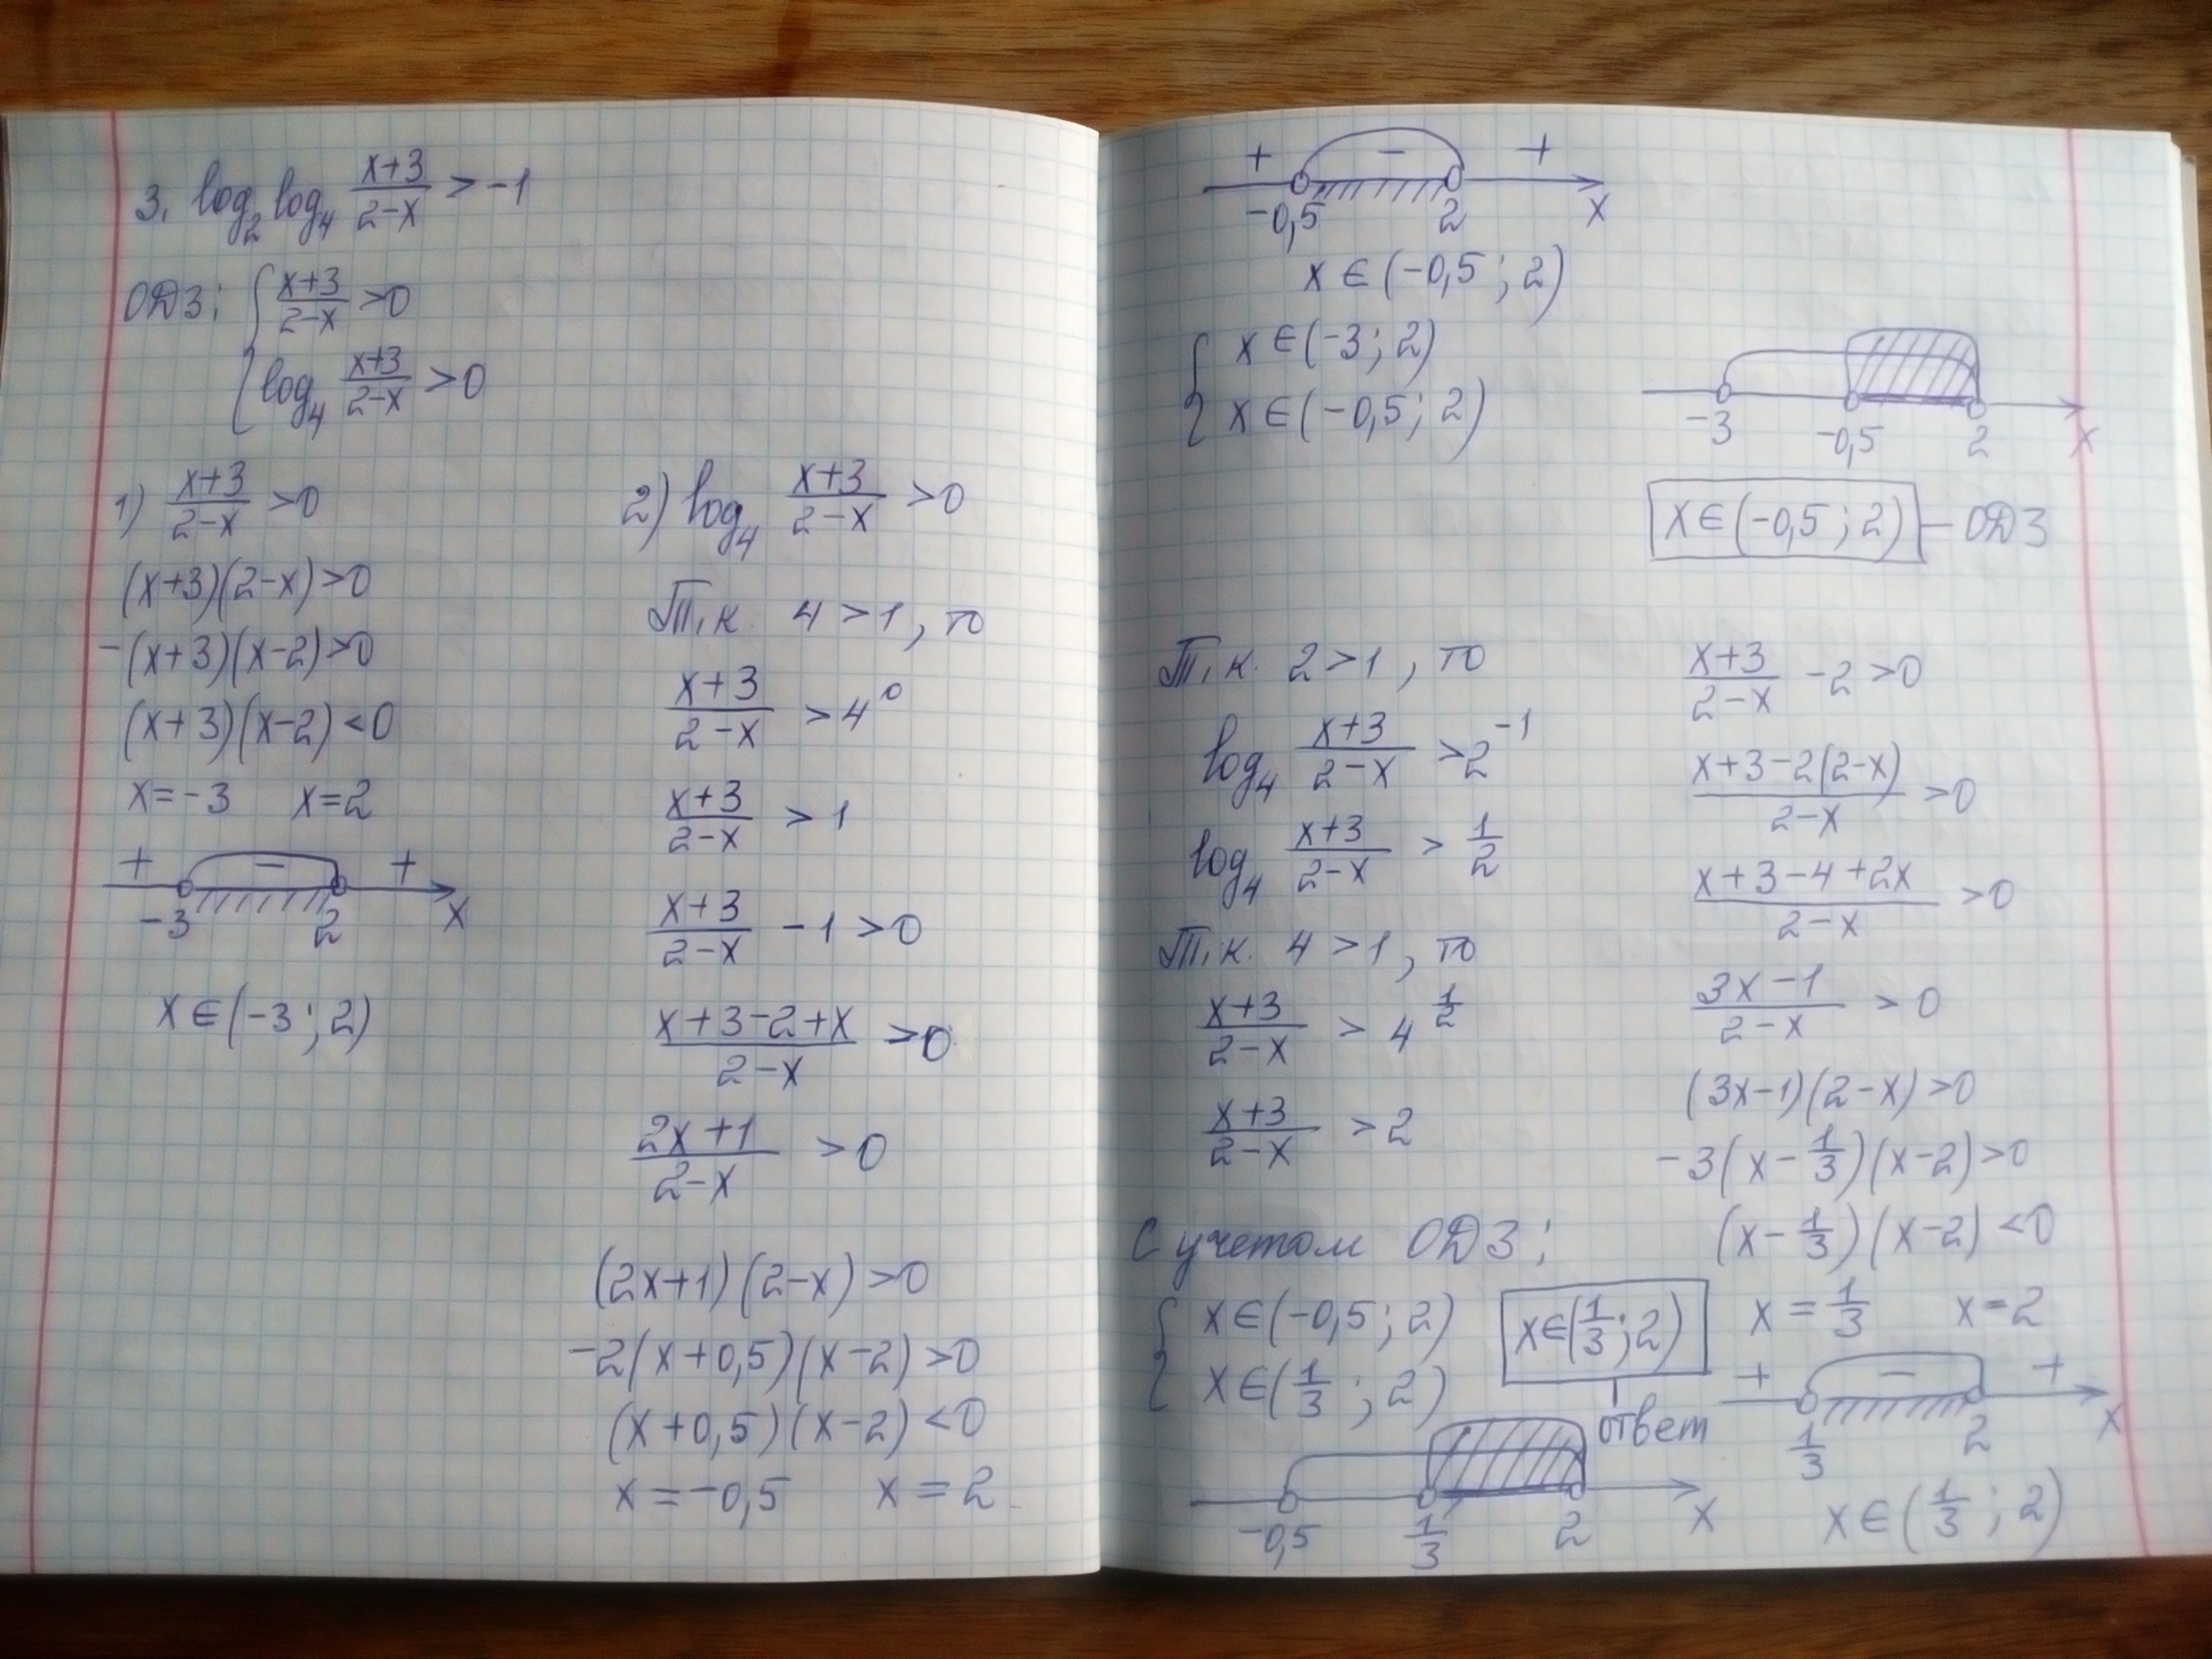 3. log₂ log₄ (x+3)/(2-x) > -1
ОДЗ: { (x+3)/(2-x) > 0
log₄ (x+3)/(2-x) > 0
1) (x+3)/(2-x) > 0
(x+3)(2-x) > 0
-(x+3)(x-2) > 0
(x+3)(x-2) < 0
x = -3 x = 2
+ - +
-3 2 x
x ∈ (-3; 2)
2) log₄ (x+3)/(2-x) > 0
Т.к. 4 > 1, то
(x+3)/(2-x) > 4⁰
(x+3)/(2-x) > 1
(x+3)/(2-x) - 1 > 0
(x+3-2+x)/(2-x) > 0
(2x+1)/(2-x) > 0
(2x+1)(2-x) > 0
-2(x+0,5)(x-2) > 0
(x+0,5)(x-2) < 0
x = -0,5 x = 2
+ - +
-0,5 2 x
x ∈ (-0,5; 2)
{ x ∈ (-3; 2)
x ∈ (-0,5; 2)
-3 -0,5 2 x
x ∈ (-0,5; 2) - ОДЗ
Т.к. 2 > 1, то
log₄ (x+3)/(2-x) > 2⁻¹
log₄ (x+3)/(2-x) > 1/2
Т.к. 4 > 1, то
(x+3)/(2-x) > 4^(1/2)
(x+3)/(2-x) > 2
(x+3)/(2-x) - 2 > 0
(x+3-2(2-x))/(2-x) > 0
(x+3-4+2x)/(2-x) > 0
(3x-1)/(2-x) > 0
(3x-1)(2-x) > 0
-3(x - 1/3)(x-2) > 0
(x - 1/3)(x-2) < 0
x = 1/3 x = 2
+ - +
1/3 2 x
x ∈ (1/3; 2)
С учетом ОДЗ:
{ x ∈ (-0,5; 2)
x ∈ (1/3; 2)
-0,5 1/3 2 x
x ∈ (1/3; 2)
ответ